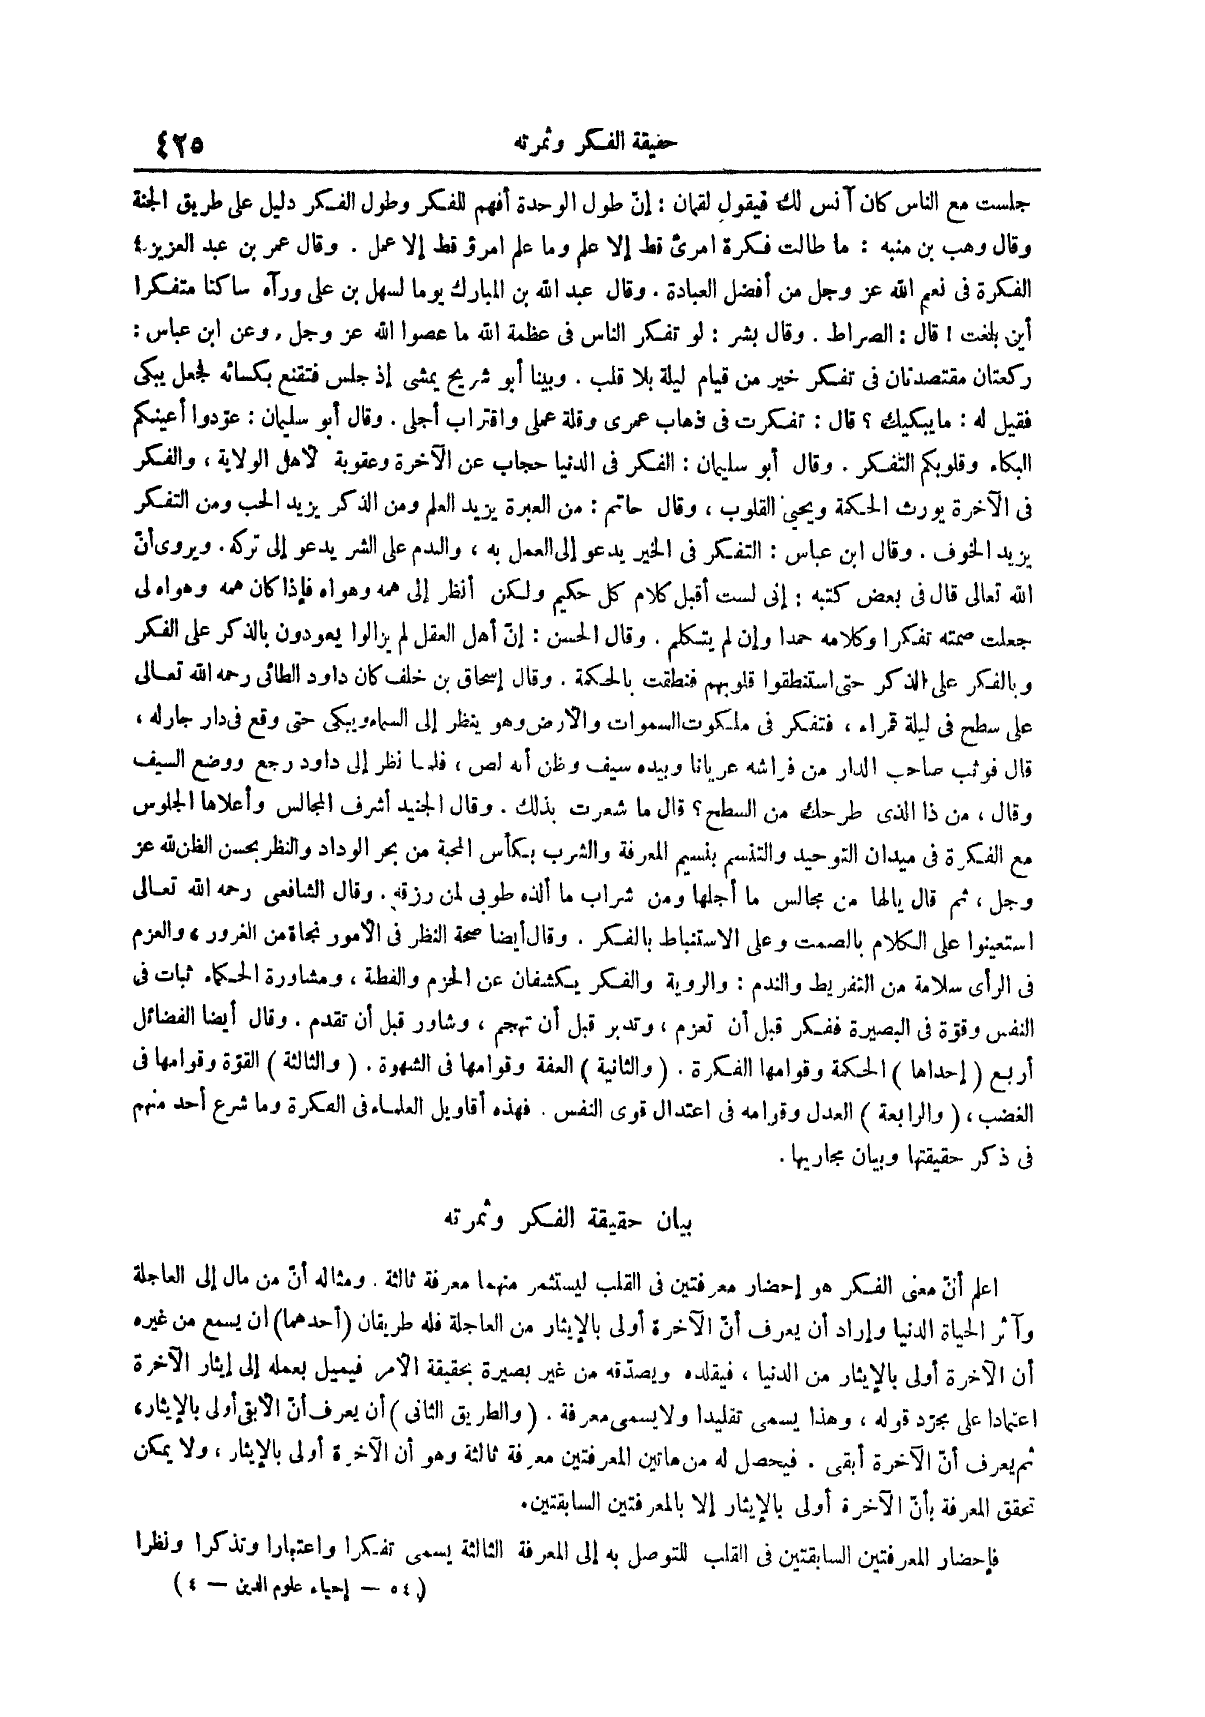 حقيقة الفكر وثمرته
٤٢٥
جلست مع الناس كان آنس لك فيقول لقمان : إنّ طول الوحدة أفهم للفكر وطول الفكر دليل على طريق الجنة
وقال وهب بن منبه : ما طالت فكرة امرئ قط إلا علم وما علم امرؤ قط إلا عمل . وقال عمر بن عبد العزيز .
الفكرة فى نعم الله عز وجل من أفضل العبادة . وقال عبد الله بن المبارك يوما لسهل بن على ورآه ساكنا متفكرا
أين بلغت ! قال : الصراط . وقال بشر : لو تفكر الناس فى عظمة الله ما عصوا الله عز وجل . وعن ابن عباس :
ركعتان مقتصدتان فى تفكر خير من قيام ليلة بلا قلب . وبينا أبو شريح يمشى إذ جلس فتقنع بكسائه لجعل يبكى
فقيل له : مايبكيك ؟ قال : تفكرت فى ذهاب عمرى وقلة عملى واقتراب أجلى . وقال أبو سليمان : عوّدوا أعينكم
البكاء وقلوبكم التفكر . وقال أبو سليمان : الفكر فى الدنيا حجاب عن الآخرة وعقوبة لأهل الولاية ، والفكر
فى الآخرة يورث الحكمة ويحيى القلوب ، وقال حاتم : من العبرة يزيد العلم ومن الذكر يزيد الحب ومن التفكر
يزيد الخوف . وقال ابن عباس : التفكر فى الخير يدعو إلى العمل به ، والندم على الشر يدعو إلى تركه . ويروى أنّ
الله تعالى قال فى بعض كتبه : إنى لست أقبل كلام كل حكيم ولكن أنظر إلى همه وهواه فإذا كان همه وهواه لى
جعلت صمته تفكرا وكلامه حمدا وإن لم يتكلم . وقال الحسن : إنّ أهل العقل لم يزالوا يعودون بالذكر على الفكر
وبالفكر على الذكر حتى استنطقوا قلوبهم فنطقت بالحكمة . وقال إسحاق بن خلف كان داود الطائى رحمه الله تعالى
على سطح فى ليلة قمراء ، فتفكر فى ملكوت السموات والأرض وهو ينظر إلى السماء ويبكى حتى وقع فى دار جار له ،
قال فوثب صاحب الدار من فراشه عريانا وبيده سيف وظن أنه لص ، فلما نظر إلى داود رجع ووضع السيف
وقال ، من ذا الذى طرحك من السطح ؟ قال ما شعرت بذلك . وقال الجنيد أشرف المجالس وأعلاها الجلوس
مع الفكرة فى ميدان التوحيد والتنسم بنسيم المعرفة والشرب بكأس المحبة من بحر الوداد والنظر بحسن الظن لله عز
وجل ، ثم قال يالها من مجالس ما أجلها ومن شراب ما ألذه طوبى لمن رزقه . وقال الشافعى رحمه الله تعالى
استعينوا على الكلام بالصمت وعلى الاستنباط بالفكر . وقال أيضا صحة النظر فى الأمور نجاة من الغرور ، والعزم
فى الرأى سلامة من التفريط والندم : والروية والفكر يكشفان عن الحزم والفطنة ، ومشاورة الحكماء ثبات فى
النفس وقوّة فى البصيرة ففكر قبل أن تعزم ، وتدبر قبل أن تهجم ، وشاور قبل أن تقدم . وقال أيضا الفضائل
أربع ( إحداها ) الحكمة وقوامها الفكرة . ( والثانية ) العفة وقوامها فى الشهوة . ( والثالثة ) القوّة وقوامها فى
الغضب ، ( والرابعة ) العدل وقوامه فى اعتدال قوى النفس . فهذه أقاويل العلماء فى الفكرة وما شرع أحد منهم
فى ذكر حقيقتها وبيان مجاريها .
بيان حقيقة الفكر وثمرته
اعلم أنّ معنى الفكر هو إحضار معرفتين فى القلب ليستثمر منهما معرفة ثالثة . ومثاله أنّ من مال إلى العاجلة
وآثر الحياة الدنيا وإراد أن يعرف أنّ الآخرة أولى بالإيثار من العاجلة فله طريقان ( أحدهما ) أن يسمع من غيره
أن الآخرة أولى بالإيثار من الدنيا ، فيقلده ويصدّقه من غير بصيرة بحقيقة الأمر فيميل بعمله إلى إيثار الآخرة
اعتمادا على مجرّد قوله ، وهذا يسمى تقليدا ولا يسمى معرفة . ( والطريق الثانى ) أن يعرف أنّ الأبقى أولى بالإيثار ،
ثم يعرف أنّ الآخرة أبقى . فيحصل له من هاتين المعرفتين معرفة ثالثة وهو أن الآخرة أولى بالإيثار ، ولا يمكن
تحقق المعرفة بأنّ الآخرة أولى بالإيثار إلا بالمعرفتين السابقتين .
فإحضار المعرفتين السابقتين فى القلب للتوصل به إلى المعرفة الثالثة يسمى تفكرا واعتبارا وتذكرا ونظرا
( ٥٤ – إحياء علوم الدين – ٤ )